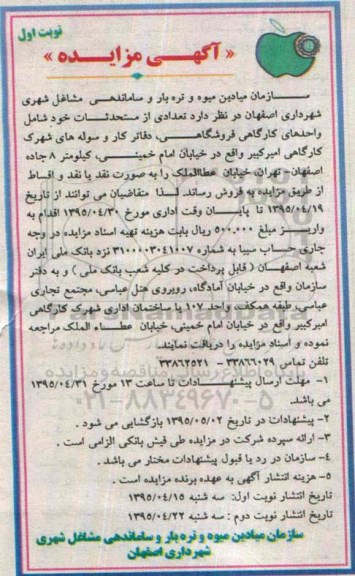 نوبت اول
« آگهی مزایده »
سازمان میادین میوه و تره بار و ساماندهی مشاغل شهری
شهرداری اصفهان در نظر دارد تعدادی از مستحدثات خود شامل
واحدهای کارگاهی فروشگاهی، دفاتر کار و سوله های شهرک
کارگاهی امیرکبیر واقع در خیابان امام خمینی، کیلومتر ۸ جاده
اصفهان - تهران، خیابان عطاالملک را به صورت نقد یا نقد و اقساط
از طریق مزایده به فروش رساند. لذا متقاضیان می توانند از تاریخ
۱۳۹۵/۰۴/۱۹ تا پایان وقت اداری مورخ ۱۳۹۵/۰۴/۳۰ اقدام به
واریز مبلغ ۵۰۰.۰۰۰ ریال بابت هزینه تهیه اسناد مزایده در وجه
جاری حساب سیبا به شماره ۳۱۰۰۰۰۳۰۴۱۰۰۷ نزد بانک ملی ایران
شعبه اصفهان ( قابل پرداخت در کلیه شعب بانک ملی ) و به دفتر
سازمان واقع در خیابان آمادگاه، روبروی هتل عباسی، مجتمع تجاری
عباسی، طبقه همکف، واحد ۱۰۷ یا ساختمان اداری شهرک کارگاهی
امیرکبیر واقع در خیابان امام خمینی، خیابان عطاء الملک مراجعه
نموده و اسناد مزایده را دریافت نمایند.
تلفن تماس ۳۳۸۶۶۰۲۹ - ۳۳۸۶۲۵۲۱
۱- مهلت ارسال پیشنهادات تا ساعت ۱۳ مورخ ۱۳۹۵/۰۴/۳۱
می باشد.
۲- پیشنهادات در تاریخ ۱۳۹۵/۰۵/۰۲ بازگشایی می شود .
۳- ارائه سپرده شرکت در مزایده طی فیش بانکی الزامی است .
۴- سازمان در رد یا قبول پیشنهادات مختار می باشد .
۵- هزینه انتشار آگهی به عهده برنده مزایده است .
تاریخ انتشار نوبت اول: سه شنبه ۱۳۹۵/۰۴/۱۵
تاریخ انتشار نوبت دوم : سه شنبه ۱۳۹۵/۰۴/۲۲
سازمان میادین میوه و تره بار و ساماندهی مشاغل شهری
شهرداری اصفهان
پایگاه اطلاع رسانی مناقصه و مزایده
۰۲۱-۸۸۳۴۹۶۷۰-۵